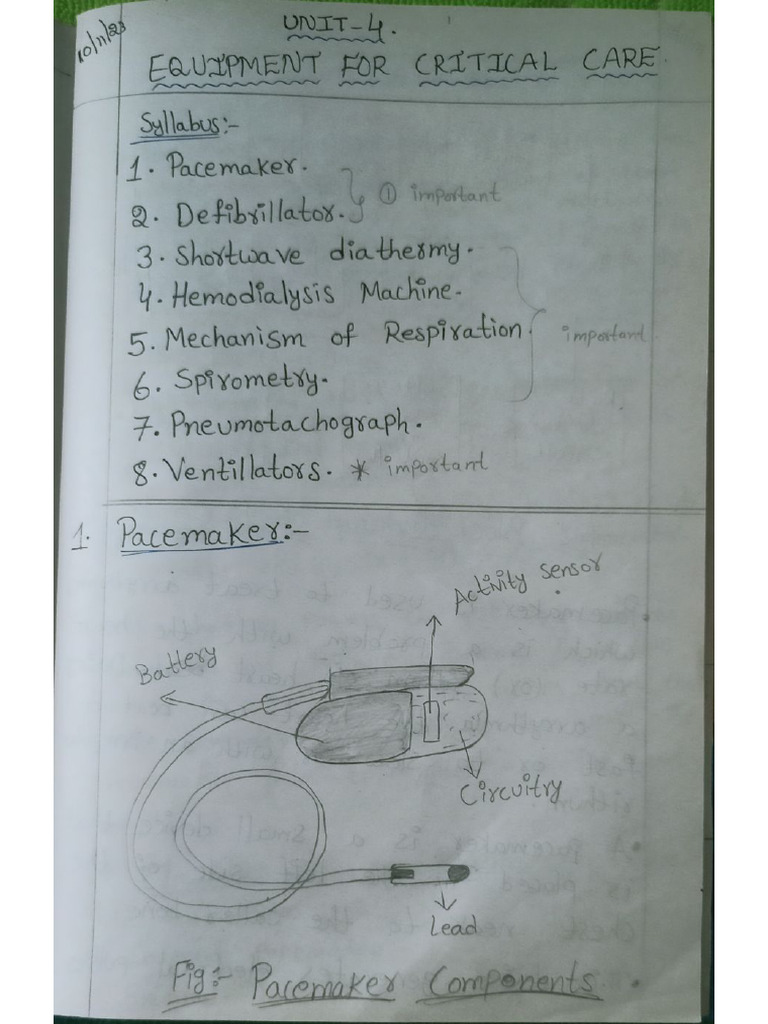 10/11/23
UNIT-4.
EQUIPMENT FOR CRITICAL CARE.
Syllabus:-
1. Pacemaker.
2. Defibrillator.
① important
3. Shortwave diathermy.
4. Hemodialysis Machine.
5. Mechanism of Respiration.
6. Spirometry.
important
7. Pneumotachograph.
8. Ventillators. * important
1. Pacemaker:-
Activity sensor
Battery
Circuitry
Lead
Fig:- Pacemaker Components.